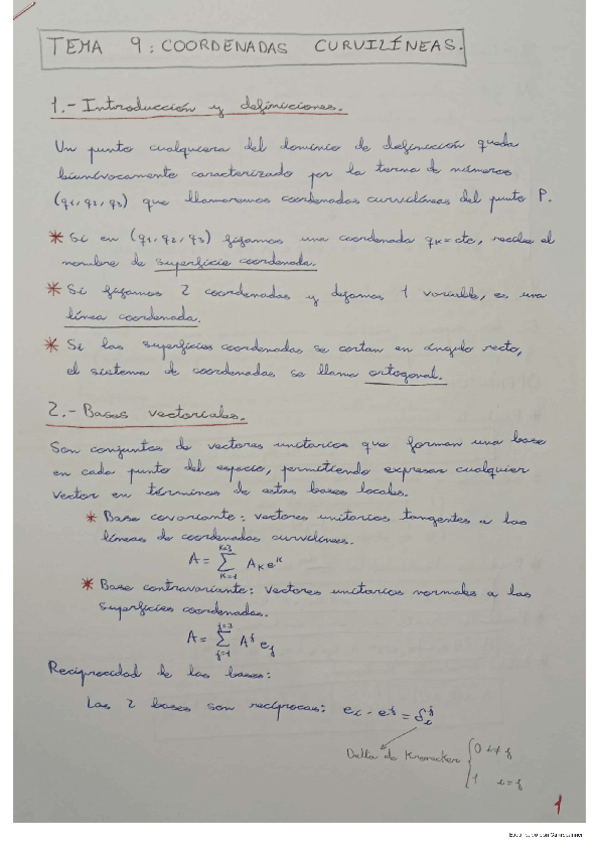 TEMA 9: COORDENADAS CURVILÍNEAS.
1.- Introducción y definiciones.
Un punto cualquiera del dominio de definición queda
biunívocamente caracterizado por la terna de números
(q₁, q₂, q₃) que llamaremos coordenadas curvilíneas del punto P.
* Si en (q₁, q₂, q₃) fijamos una coordenada qₖ=cte, recibe el
nombre de superficie coordenada.
* Si fijamos 2 coordenadas y dejamos 1 variable, es una
línea coordenada.
* Si las superficies coordenadas se cortan en ángulo recto,
el sistema de coordenadas se llama ortogonal.
2.- Bases vectoriales.
Son conjuntos de vectores unitarios que forman una base
en cada punto del espacio, permitiendo expresar cualquier
vector en términos de estas bases locales.
* Base covariante: vectores unitarios tangentes a las
líneas de coordenadas curvilíneas.
A = Σ Aₖ eᵏ
K=3
K=1
* Base contravariante: vectores unitarios normales a las
superficies coordenadas.
A = Σ Aʲ eⱼ
j=3
j=1
Reciprocidad de las bases:
Las 2 bases son recíprocas: eᵢ · eʲ = δᵢʲ
Delta de Kronecker { 0 i≠j
1 i=j
1